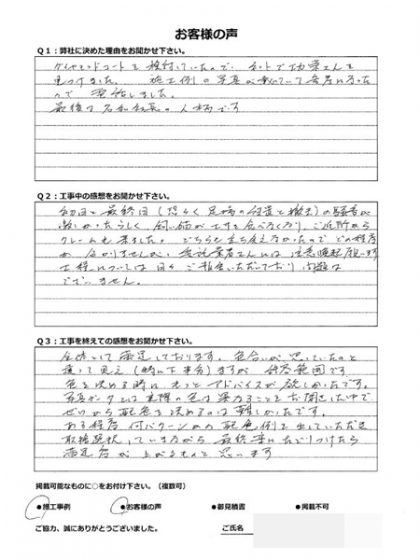 お客様の声
Q1：弊社に決めた理由をお聞かせ下さい。
ダイヤモンドコートを検討していたので、ネットで功栄さんを
見つけました。施工例の写真が載っていて参考になった
ので 連絡しました。
最後は 名和社長の人柄です
Q2：工事中の感想をお聞かせ下さい。
初日と最終日(恐らく足場の設置と撤去)の騒音が
激しかったらしく、飼い猫がエサを食べなくなり、ご近所から
クレームも来ました。どちらも立ち会えなかったのでどの程度
か分かりませんが、委託業者さんには注意喚起願います
工程については日々ご報告いただいており問題は
ございません。
Q3：工事を終えての感想をお聞かせ下さい。
全体として満足しております。色合いが思っていたのと
違って見え(特に下半分)ますが、許容範囲です
色を決める時に、もっとアドバイスが欲しかったです。
写真やサンプルは実際の色は異なることを お聞きした中で
ゼロから配色を決めるのは難しかったです。
ある程度、何パターンかの配色例を出していただき
取捨選択していきながら最終案にたどりつけたら
満足度が上がるものと思います
掲載可能なものに○をお付け下さい。（複数可）
●施工事例 ●お客様の声 ●御見積書 ●掲載不可
ご協力、誠にありがとうございました。
ご氏名